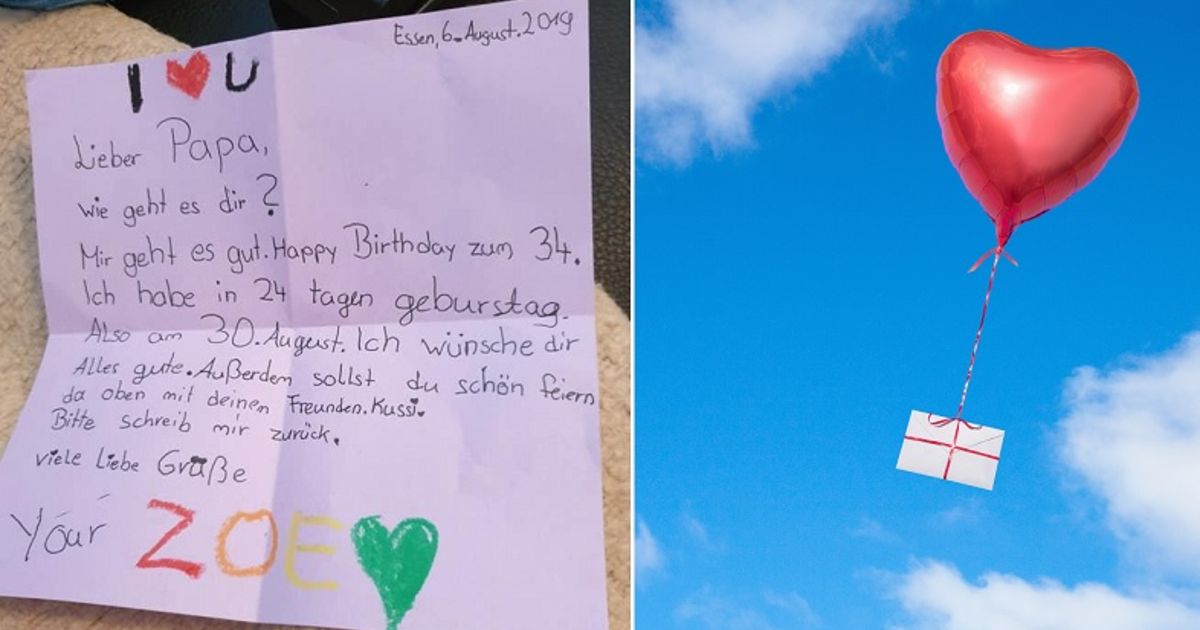 Essen, 6. August. 2019
I ♥ U
Lieber Papa,
wie geht es dir?
Mir geht es gut. Happy Birthday zum 34.
Ich habe in 24 tagen geburstag.
Also am 30. August. Ich wünsche dir
Alles gute. Außerdem sollst du schön feiern
da oben mit deinen Freunden. Kussi.
Bitte schreib mir zurück.
viele Liebe Grüße
Your ZOE